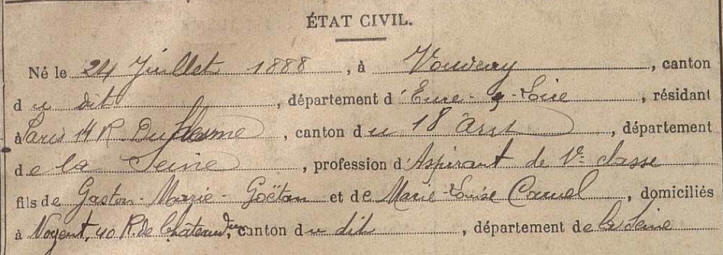 ÉTAT CIVIL.
Né le 24 Juillet 1888, à , canton
du dit, département d'Eure-&-Loire, résidant
à Paris 14 R. Duhesme, canton du 18e arrt, département
de la Seine, profession d'Aspirant de 1re classe
fils de Gaston-Marie-Goëtan et de Marie-Louise, domiciliés
à Nogent, 40 R. de Chateaudun, canton du dit, département de la Seine